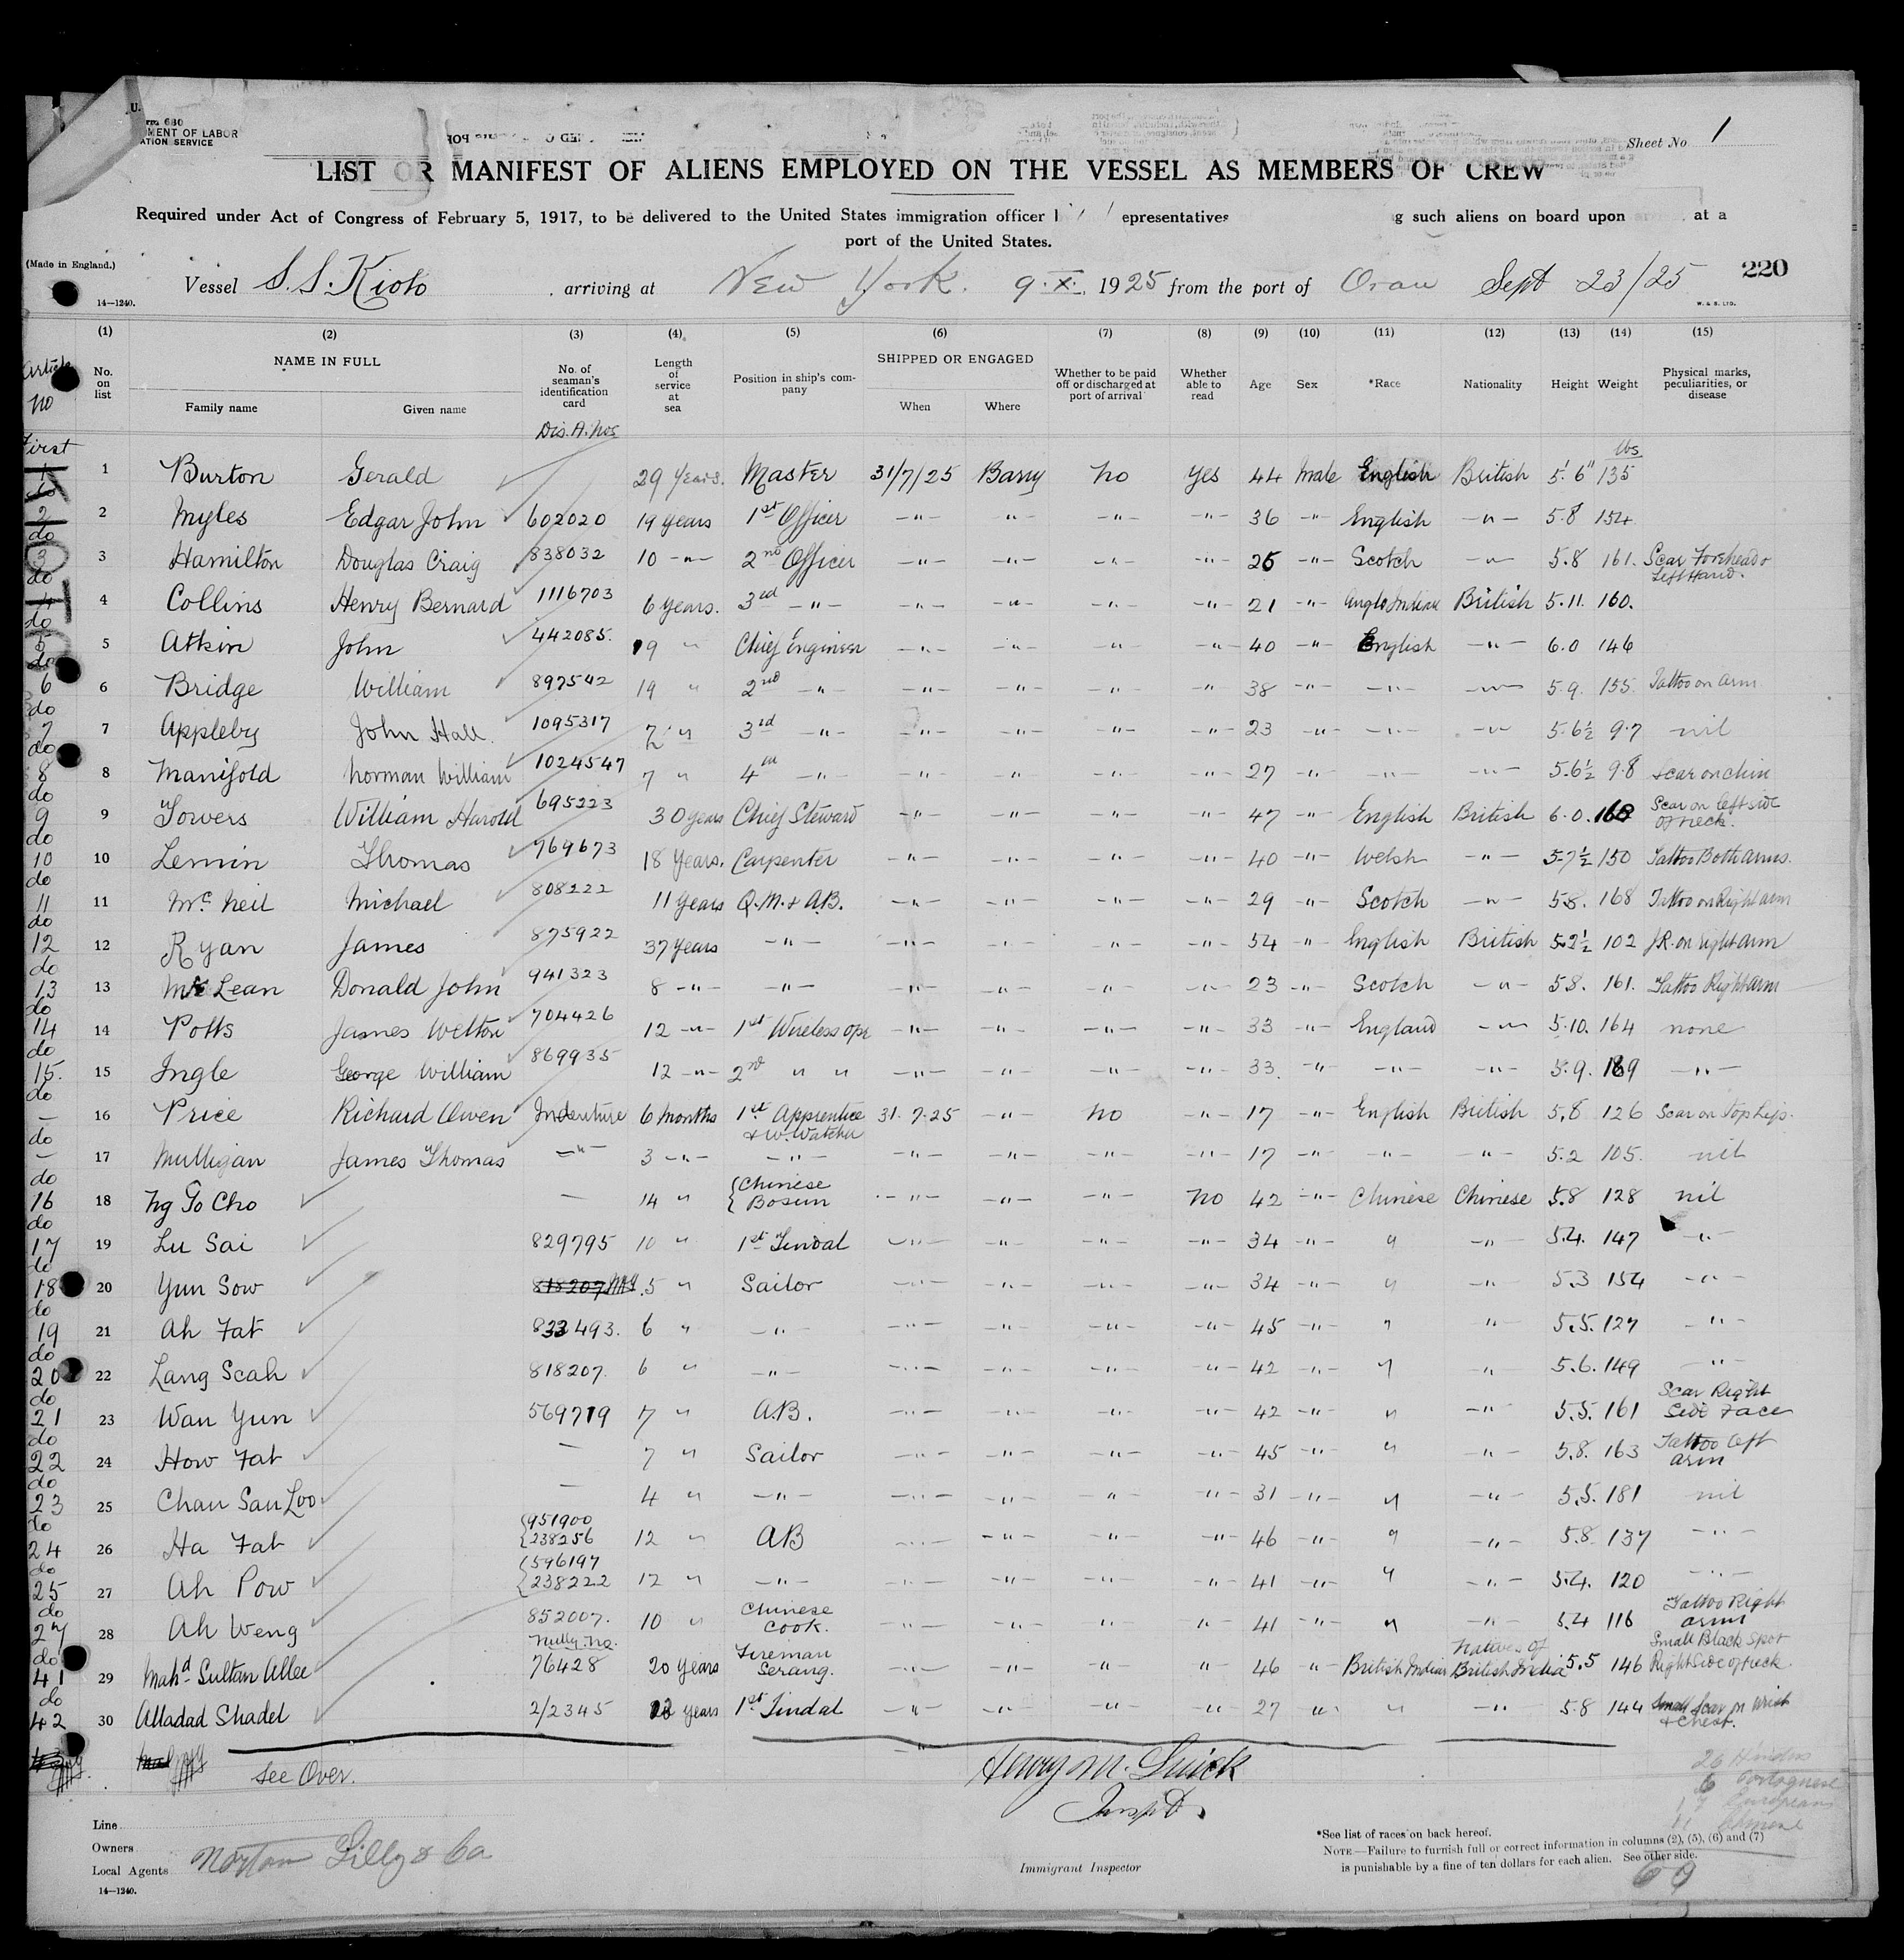 680
MENT OF LABOR
ATION SERVICE
Sheet No 1
LIST OR MANIFEST OF ALIENS EMPLOYED ON THE VESSEL AS MEMBERS OF CREW
Required under Act of Congress of February 5, 1917, to be delivered to the United States immigration officer epresentatives g such aliens on board upon at a
port of the United States.
(Made in England.)
Vessel S.S. Kioto arriving at New York. 9.X. 1925 from the port of Oran Sept 23/25 220
14—1240. W. & S. LTD.
(1) (2) (3) (4) (5) (6) (7) (8) (9) (10) (11) (12) (13) (14) (15)
Article No No. on list NAME IN FULL Family name Given name No. of seaman's identification card Length of service at sea Position in ship's company SHIPPED OR ENGAGED When Where Whether to be paid off or discharged at port of arrival Whether able to read Age Sex *Race Nationality Height Weight Physical marks, peculiarities, or disease
Dis. A. Nos
First lbs
1 Burton Gerald 29 Years. Master 31/7/25 Barry No Yes 44 Male English British 5' 6" 135
2 do 2 Myles Edgar John 602020 19 years 1st Officer -"- -"- -"- -"- 36 -"- English -"- 5.8 154
3 do 3 Hamilton Douglas Craig 838032 10 -"- 2nd Officer -"- -"- -"- -"- 26 -"- Scotch -"- 5.8 161. Scar Forehead & Left Hand.
4 do 4 Collins Henry Bernard 1116703 6 years. 3rd -"- -"- -"- -"- -"- 21 -"- Anglo Indian British 5.11. 160.
5 do 5 Atkin John 442085. 19 " Chief Engineer -"- -"- -"- -"- 40 -"- English -"- 6.0 146
6 do 6 Bridge William 897542 19 " 2nd -"- -"- -"- -"- -"- 38 -"- -"- -"- 5.9. 155. Tattoo on arm
7 do 7 Appleby John Hall. 1095317 " 3rd -"- -"- -"- -"- -"- 23 -"- -"- -"- 5.6½ 9.7 nil
8 do 8 Manifold Norman William 1024547 7 " 4th -"- -"- -"- -"- -"- 27 -"- -"- -"- 5.6½ 9.8 Scar on chin
9 do 9 Towers William Harold 695223 30 years Chief Steward -"- -"- -"- -"- 47 -"- English British 6.0. 168 Scar on left side of neck.
10 do 10 Lemin Thomas 769673 18 Years. Carpenter -"- -"- -"- -"- 40 -"- Welsh -"- 5.7½ 150 Tattoo Both arms.
11 do 11 McNeil Michael 808222 11 Years Q.M. & A.B. -"- -"- -"- -"- 29 -"- Scotch -"- 5.8. 168 Tattoo on Right arm
12 do 12 Ryan James 875922 37 Years -"- -"- -"- -"- -"- 54 -"- English British 5.2½ 102 J.R. on right arm
13 do 13 McLean Donald John 941323 8 -"- -"- -"- -"- -"- -"- 23 -"- Scotch -"- 5.8. 161. Tattoo Right arm
14 do 14 Potts James Welton 704426 12 -"- 1st Wireless opr -"- -"- -"- -"- 33 -"- England -"- 5.10. 164 none
15. do 15 Ingle George William 869935 12 -"- 2nd " " -"- -"- -"- -"- 33. -"- -"- -"- 5.9. 189 -"-
— do 16 Price Richard Owen Indenture 6 months 1st Apprentice & W. Watcher 31. 7.25 -"- No -"- 17 -"- English British 5.8 126 Scar on top Lip.
— do 17 Mulligan James Thomas -"- 3 -"- -"- -"- -"- -"- -"- 17 -"- -"- -"- 5.2 105. nil
16 do 18 Ng To Cho — 14 " Chinese Bosun -"- -"- -"- No 42 -"- Chinese Chinese 5.8 128 nil
17 do 19 Lu Sai 829795 10 " 1st Tindal -"- -"- -"- -"- 34 -"- " -"- 5.4. 147 -"-
18 do 20 Yun Sow 818207 5 " Sailor -"- -"- -"- -"- 34 -"- " -"- 5.3 154 -"-
19 do 21 Ah Fat 833493. 6 " -"- -"- -"- -"- -"- 45 -"- " -"- 5.5. 127 -"-
20 do 22 Lang Scah 818207. 6 " -"- -"- -"- -"- -"- 42 -"- " -"- 5.6. 149 -"-
21 do 23 Wan Yun 569719 7 " A.B. -"- -"- -"- -"- 42 -"- " -"- 5.5. 161 Scar Right Side Face
22 do 24 How Fat — 7 " Sailor -"- -"- -"- -"- 45 -"- " -"- 5.8. 163 Tattoo left arm
23 do 25 Chan San Loo — 4 " -"- -"- -"- -"- -"- 31 -"- " -"- 5.5. 181 nil
24 do 26 Ha Fat 951900 238256 12 " AB -"- -"- -"- -"- 46 -"- " -"- 5.8 137 -"-
25 do 27 Ah Pow 596197 238222 12 " -"- -"- -"- -"- -"- 41 -"- " -"- 5.4. 120 -"-
27 do 28 Ah Weng 852007. 10 " Chinese Cook. -"- -"- " " 41 -"- " -"- 5.4 116 Tattoo Right arm
41 do 29 Mahd Sultan Allee Nully No. 76428 20 years Fireman Serang. -"- -"- " " 46 -"- British Indian Natives of British India 5.5 146 Small Black Spot Right Side of neck.
42 30 Alladad Shadel 2/2345 years 1st Tindal -"- -"- " -"- 27 " " -"- 5.8 144 Small Scar on Wrist & Chest.
See Over.
Henry M.
Inspt.
26 Hindus
6 Portuguese
17 Europeans
11 Chinese
Line
Owners
Local Agents Norton Lilly & Co
14—1240.
Immigrant Inspector
*See list of races on back hereof.
NOTE.—Failure to furnish full or correct information in columns (2), (5), (6) and (7)
is punishable by a fine of ten dollars for each alien. See other side.